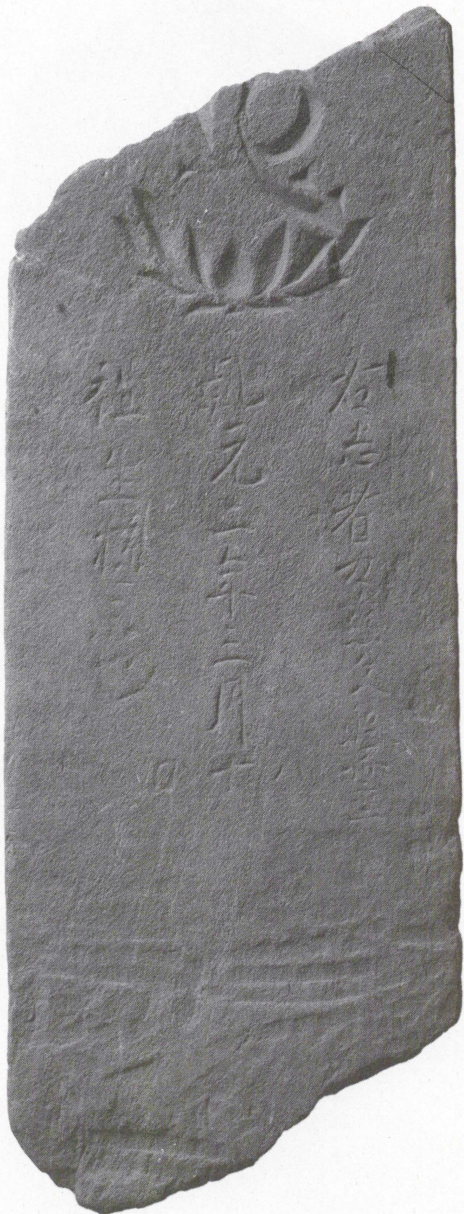 右志者為慈父
乾元二年三月十
八日
往生極楽也